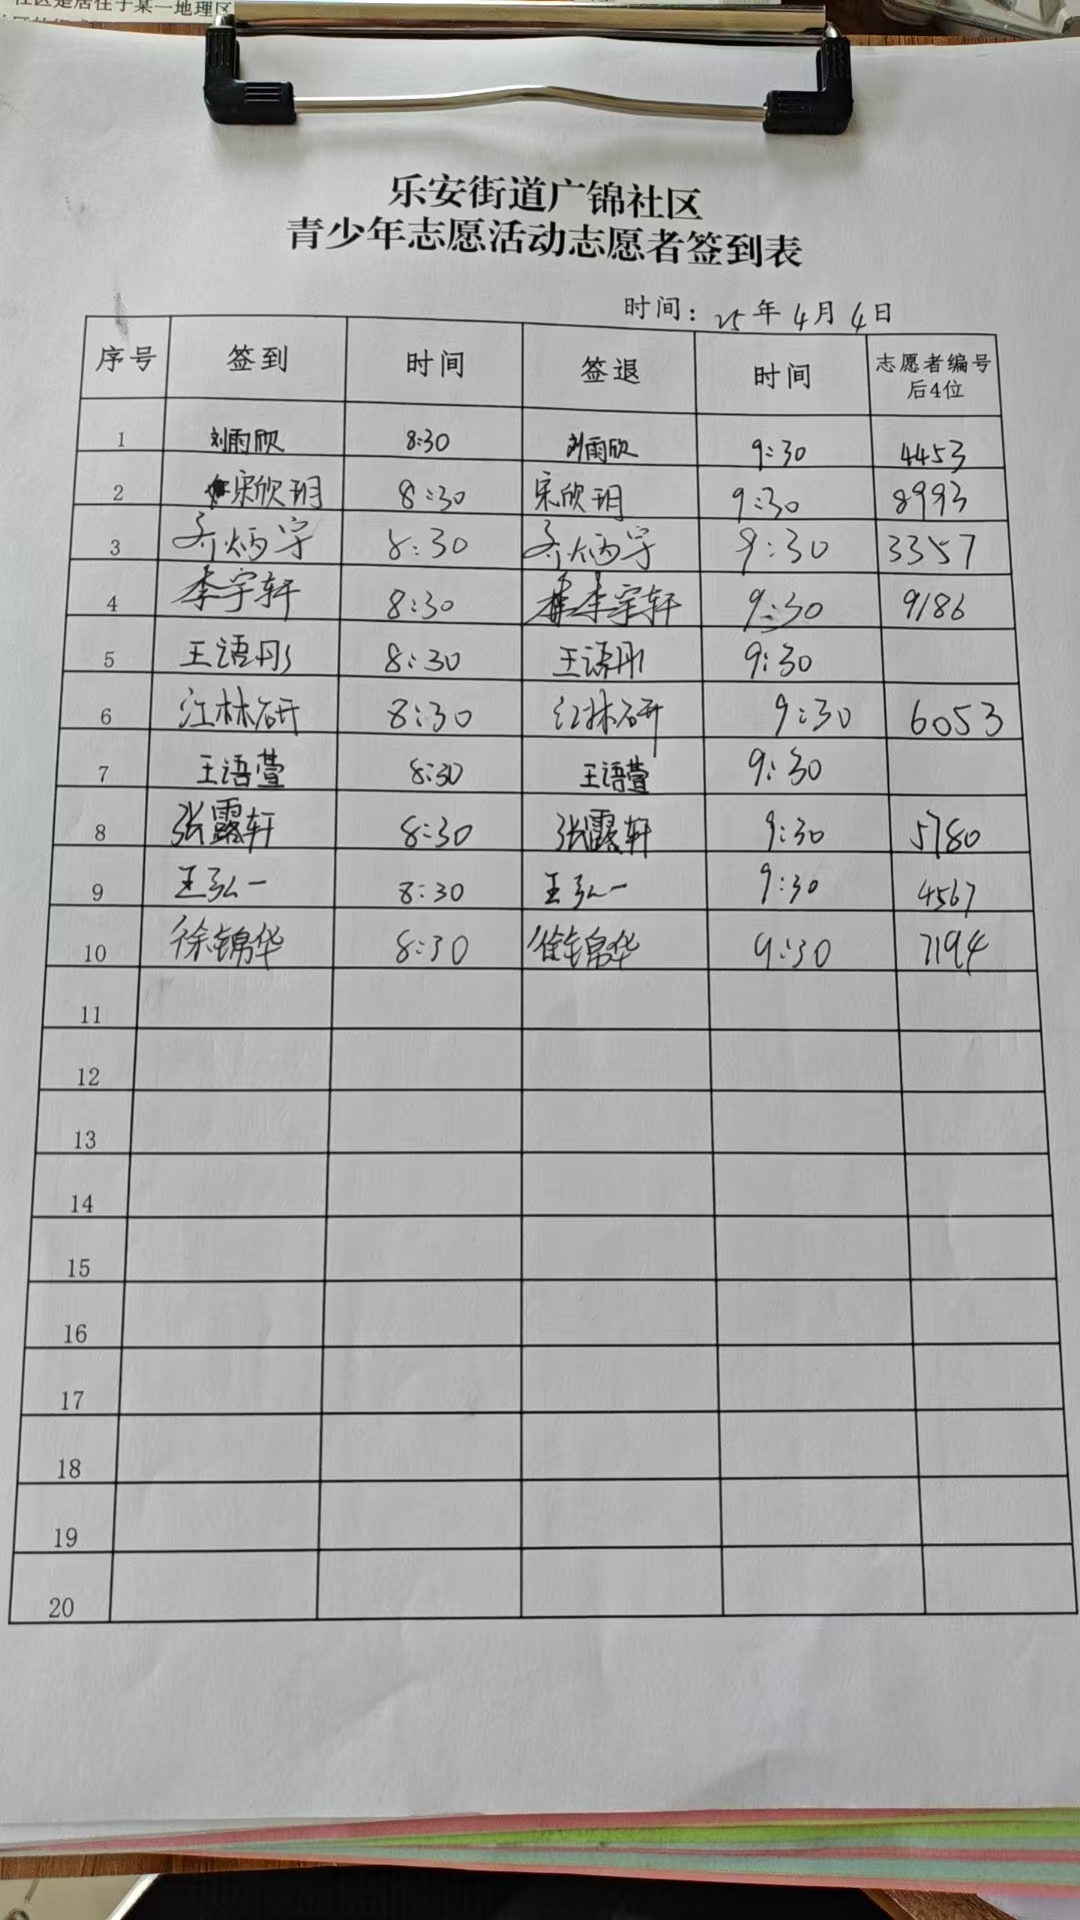 社区是居住于某一地理区
乐安街道广锦社区
青少年志愿活动志愿者签到表
时间：25年4月4日
序号 签到 时间 签退 时间 志愿者编号后4位
1 刘雨欣 8:30 刘雨欣 9:30 4453
2 宋欣玥 8:30 宋欣玥 9:30 8993
3 齐炳宇 8:30 齐炳宇 9:30 3357
4 李宇轩 8:30 李宇轩 9:30 9186
5 王语彤 8:30 王语彤 9:30
6 江林研 8:30 江林研 9:30 6053
7 王语萱 8:30 王语萱 9:30
8 张露轩 8:30 张露轩 9:30 5780
9 王弘一 8:30 王弘一 9:30 4567
10 徐锦华 8:30 徐锦华 9:30 7194
11
12
13
14
15
16
17
18
19
20